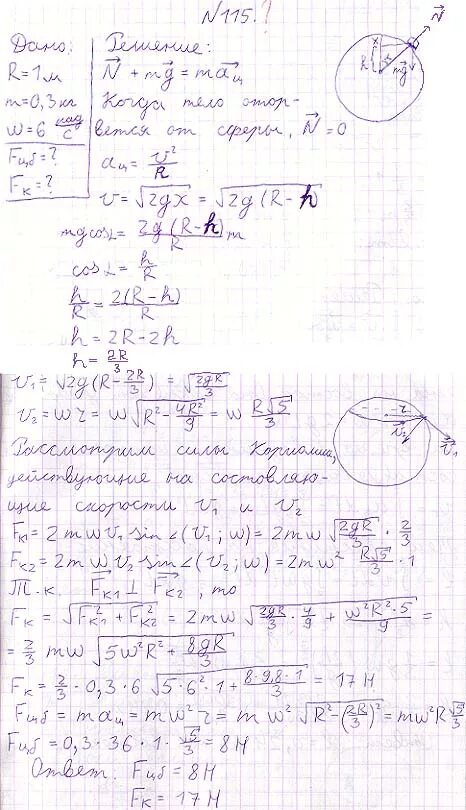 N 115.?
Дано: Решение:
R = 1 м
m = 0,3 кг
ω = 6 рад/с
Fцб = ?
Fк = ?
N⃗ + mg⃗ = ma⃗ц
Когда тело отор-
вется от сферы, N⃗ = 0
aц = v²/R
v = √(2gx) = √(2g(R-h))
mg cosα = 2g(R-h)/R m
cosα = h/R
h/R = 2(R-h)/R
h = 2R - 2h
h = 2R/3
N⃗
x
R
h
α
mg⃗
v₁ = √(2g(R - 2R/3)) = √(2gR/3)
v₂ = ω r = ω √(R² - 4R²/9) = ω R√5/3
r
v⃗₂
v⃗₁
Рассмотрим силы Кориолиса,
действующие на составляю-
щие скорости v₁ и v₂
Fк1 = 2mωv₁ sin∠(v₁; ω) = 2mω √(2gR/3) · 2/3
Fк2 = 2mωv₂ sin∠(v₂; ω) = 2mω² R√5/3 · 1
Т.к. F⃗к1 ⊥ F⃗к2, то
Fк = √(Fк1² + Fк2²) = 2mω √(2gR/3 · 4/9 + ω²R²·5/9) =
= 2/3 mω √(5ω²R² + 8gR/3)
Fк = 2/3 · 0,3 · 6 √(5·6²·1 + 8·9,8·1/3) = 17 Н
Fцб = maц = mω²r = mω² √(R² - (2R/3)²) = mω²R √5/3
Fцб = 0,3 · 36 · 1 · √5/3 = 8Н
Ответ: Fцб = 8Н
Fк = 17Н